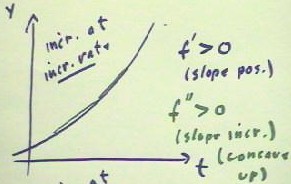 Y
incr. at
incr. rate
f' > 0
(slope pos.)
f'' > 0
(slope incr.)
(concave
up)
t
at